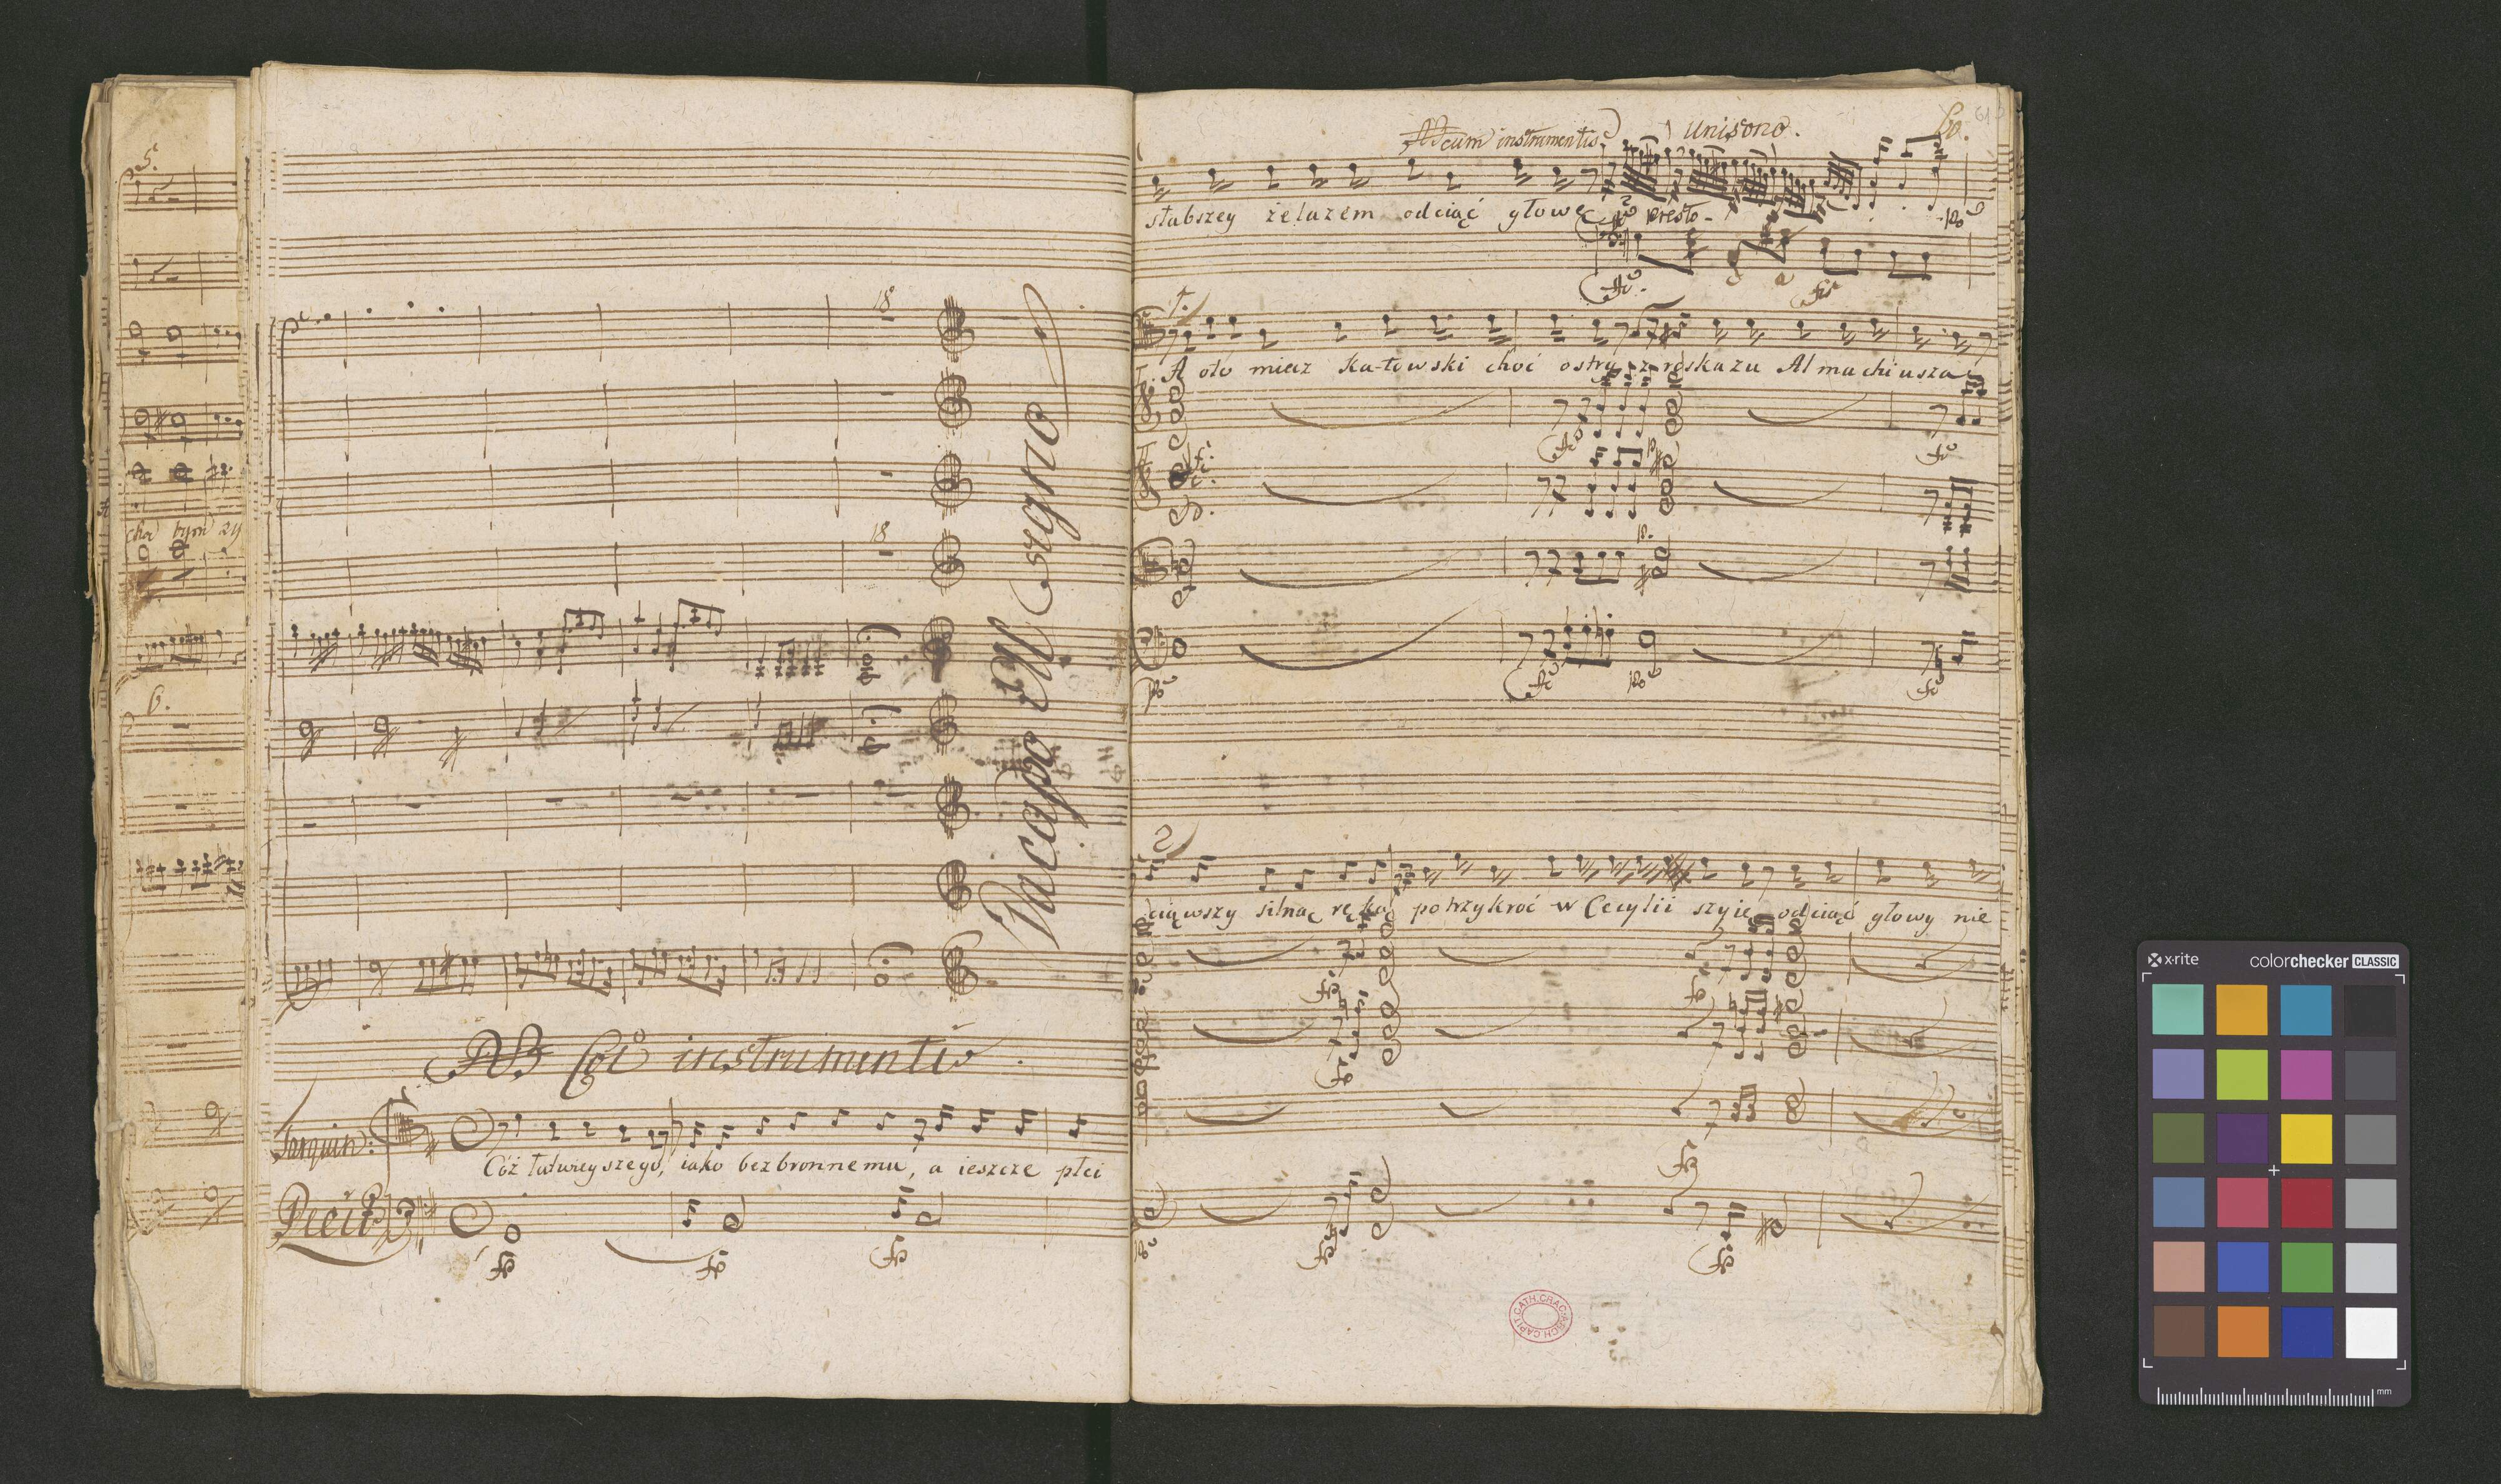 5.
cha tym zy
6.
18
18
Dacapo Al Segno
NB Coi instrumenti.
Tarquin:
Cóż łatwieyszego, iako bezbronnemu, a ieszcze płci
Recit
NB cum instrumentis.
Unisono.
60.
61
słabszey żelazem odciąć głowę
presto.
po
fo.
1.
A oto miecz Katowski choć ostry z roskazu Almachiusza
fo
fo
po
fo
po
fo
2
ciąwszy silną ręką potrzykroć w Cecylii szyię odciąć głowy nie
CATH. CRAC. ARCH. CAPIT.
x-rite
colorchecker CLASSIC
mm